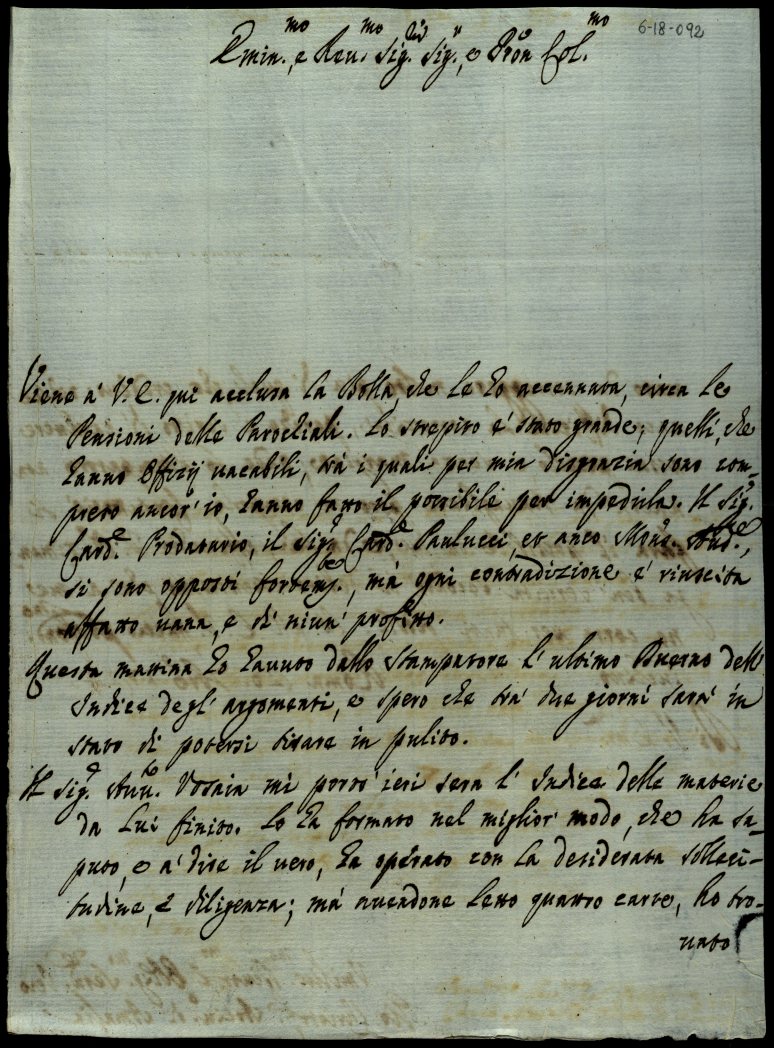 6-18-092
Emin.mo e Reu.mo Sig.r Sig.r, e Pron Col.mo
Viene à V. E. qui acclusa la Bolla, che le ho accennata, circa le
Pensioni delle Parochiali. Lo strepito e' stato grande; quelli, che
hanno Offizij uacabili, trà i quali per mia disgrazia sono com-
preso ancor' io, hanno fatto il possibile per impedirla. Il Sig.r
Card.e Prodatario, il Sig.r Card.e Paulucci, et anco Mons.r Aud.re,
si sono opposti fortem.te, mà ogni contradizione e' riuscita
affatto uana, e di niun' profitto.
Questa mattina ho hauuto dallo stampatore l' ultimo Duerno dell'
Indice degl' argomenti, e spero che trà due giorni sarà in
stato di potersi tirare in pulito.
Il Sig.r Auu.to Vosain mi portò ieri sera l' Indice delle materie
da lui finito. Lo hà formato nel miglior modo, che ha sa-
puto, e a' dire il uero, hà operato con la desiderata solleci-
tudine, e diligenza; mà auendone letto quattro carte, ho tro-
uato